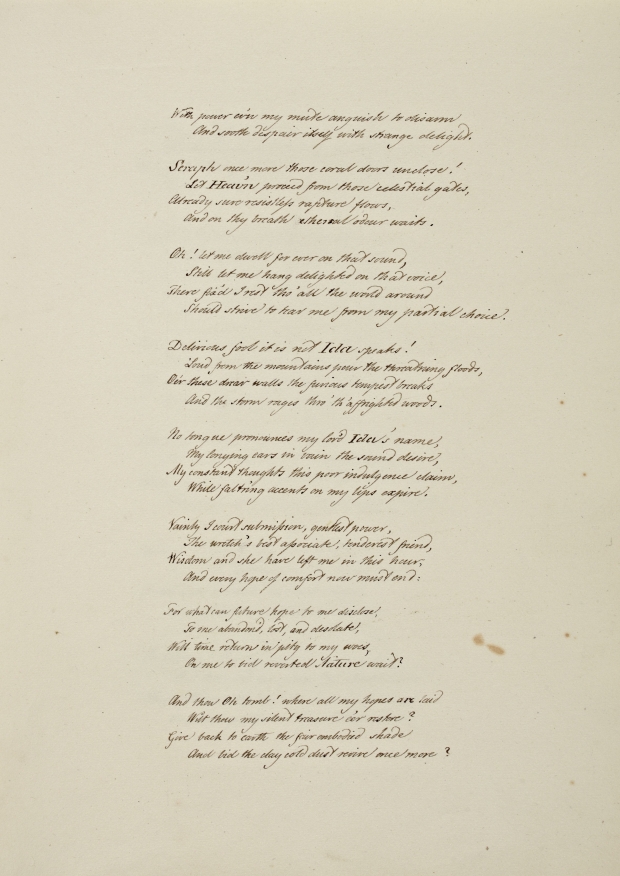 With power e'en my mute anguish to disarm
And sooth despair itself with strange delight.
Seraph once more those coral doors unclose!
Let Heav'n proceed from those celestial gates,
Already sure resistless rapture flows,
And on thy breath etherial odour waits.
Oh! let me dwell for ever on that sound,
Still let me hang delighted on that voice,
There fix'd I rest tho' all the world around
Should strive to tear me from my partial choice.
Delirious fool it is not Ida speaks!
Loud from the mountains pour the threatning floods,
O'er these drear walls the furious tempest breaks
And the storm rages thro' th' affrighted woods.
No tongue pronounces my lov'd Ida's name,
My longing ears in vain the sound desire,
My constant thoughts this poor indulgence claim,
While falt'ring accents on my lips expire.
Vainly I court submission, gentlest power,
The wretch's best associate, tenderest friend,
Wisdom and she have left me in this hour,
And every hope of comfort now must end:
For what can future hope to me disclose!
To me abandond, lost, and desolate!,
Will time return in pity to my woes,
On me to bid reverted Nature wait?
And thou Oh tomb! where all my hopes are laid
Wilt thou my silent treasure e'er restore?
Give back to earth the fair embodied shade
And bid the clay cold dust revive once more?